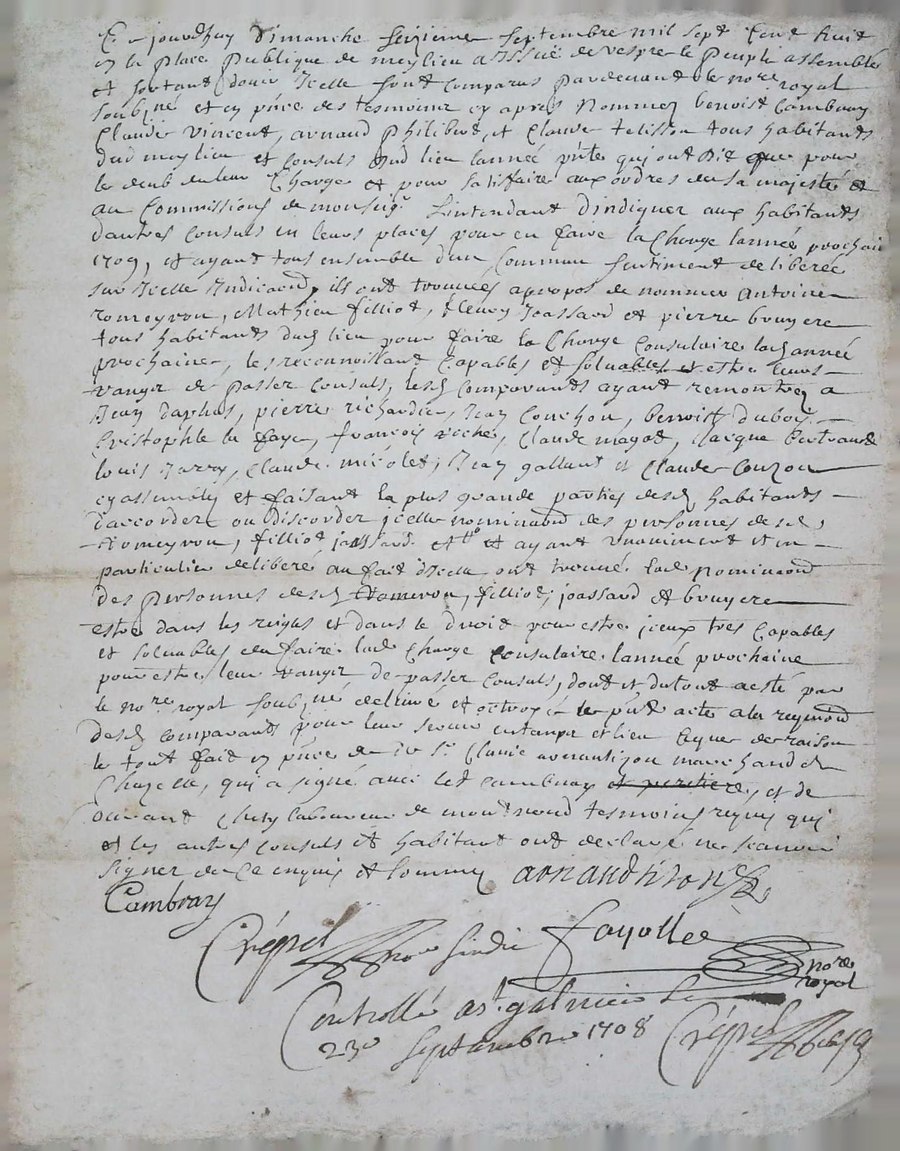 Ce jourdhuy dimanche seizieme septembre mil sept cent huit
en la place publique de meylieu a Issuë de vespre le peuple assemblés
et sortant douir Icelle sont comparus pardevant le nore royal
soubzné et en pnce des tesmoins cy apres nommez benoist Cambray
Claude vincent, arnaud philibert, et Claude telissen tous habitants
dud meylieu et consuls dud lieu lanneé pnte qui ont dit que pour
le deub de leur Charge et pour satisfaire aux ordres de sa majesté et
au Commissions de monseigr Lintendant dindiquer aux habitants
dautres Consuls en leurs places pour en faire la Charge lanneé prochain
1709, et ayant tous ensemble dun Commun sentiment deliberée
sur Icelle Indicaon, ils ont trouvées apropos de nommer Antoine
romeyron, Mathieu filliot, fleury Joassard et pierre bruyere
tous habitants dud lieu pour faire la Charge Consulaire lad année
prochaine, les reconnoissant Capables et soluables et estre leurs
ranger de passer Consuls, lesd Comparants ayant remontrez a
Jean daphus, pierre richardie, Jean Couchon, benoist duboy
Cristophle la faye, françois roche, Claude magot, Jacque bertrand
louis Jarry, Claude micolet, Jean galland et Claude Couzon
cy assemblés et faisant la plus grande parties desd habitants
daccorder ou discorder jcelle nominaon des personnes desd
Romeyron, filliot joassard et ayant unaniment et en
particulier deliberé au fait dIcelle ont trouvé lad nominaon
des personnes desd Romeron, filliot, joassard et bruyere
estre dans les reigles et dans le droit pour estre jceux tres Capables
et soluables de faire lad Charge Consulaire lannée prochaine
pour estre leur ranger de passer Consuls, dont et dutout acte par
le nore royal soubzné et octroyé le pnt acte a la
desd comparants pour leur servir en temps et lieu de raison
le tout fait en pnce de Sr Claude arnaud tizon marchand de
Chazelle, qui a signé avec led Cambray et peritiere, et de
laboureur de tesmoins requis qui
et les autres Consuls et habitant ont declaré ne scavoir
signer de ce enquis et sommez arnaudtizon
Cambray
Crépet nore sindic fayolle nore
royal
Controllé a st galmier le
23e septembre 1708 Crépet